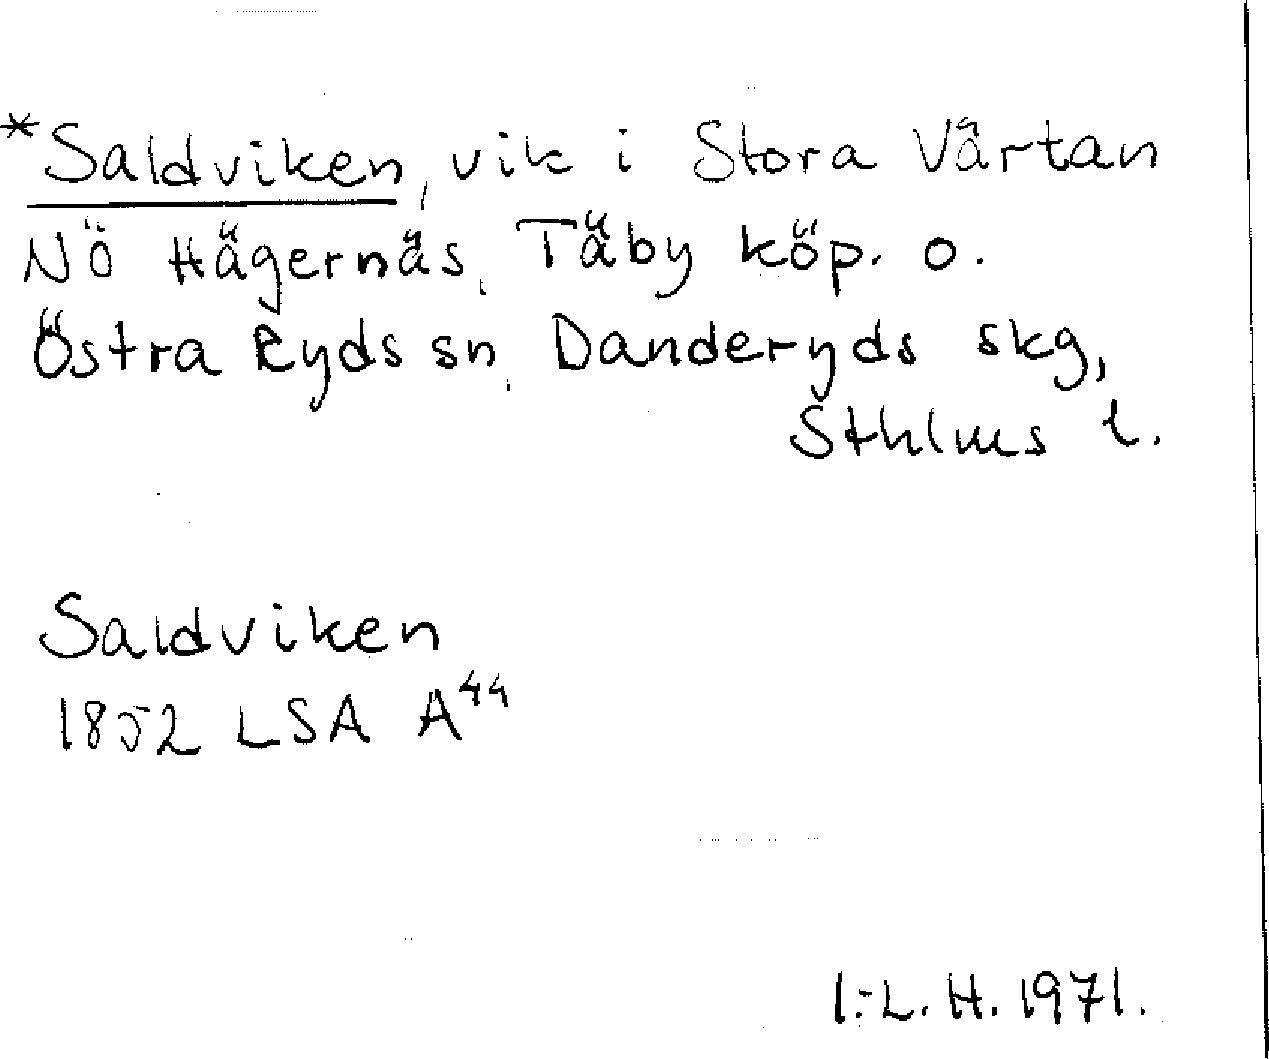 *Saldviken, vik i Stora Värtan
NÖ Hägernäs, Täby köp. o.
Östra Ryds sn, Danderyds skg,
Sthlms l.
Saldviken
1852 LSA A44
I.-L. H. 1971.